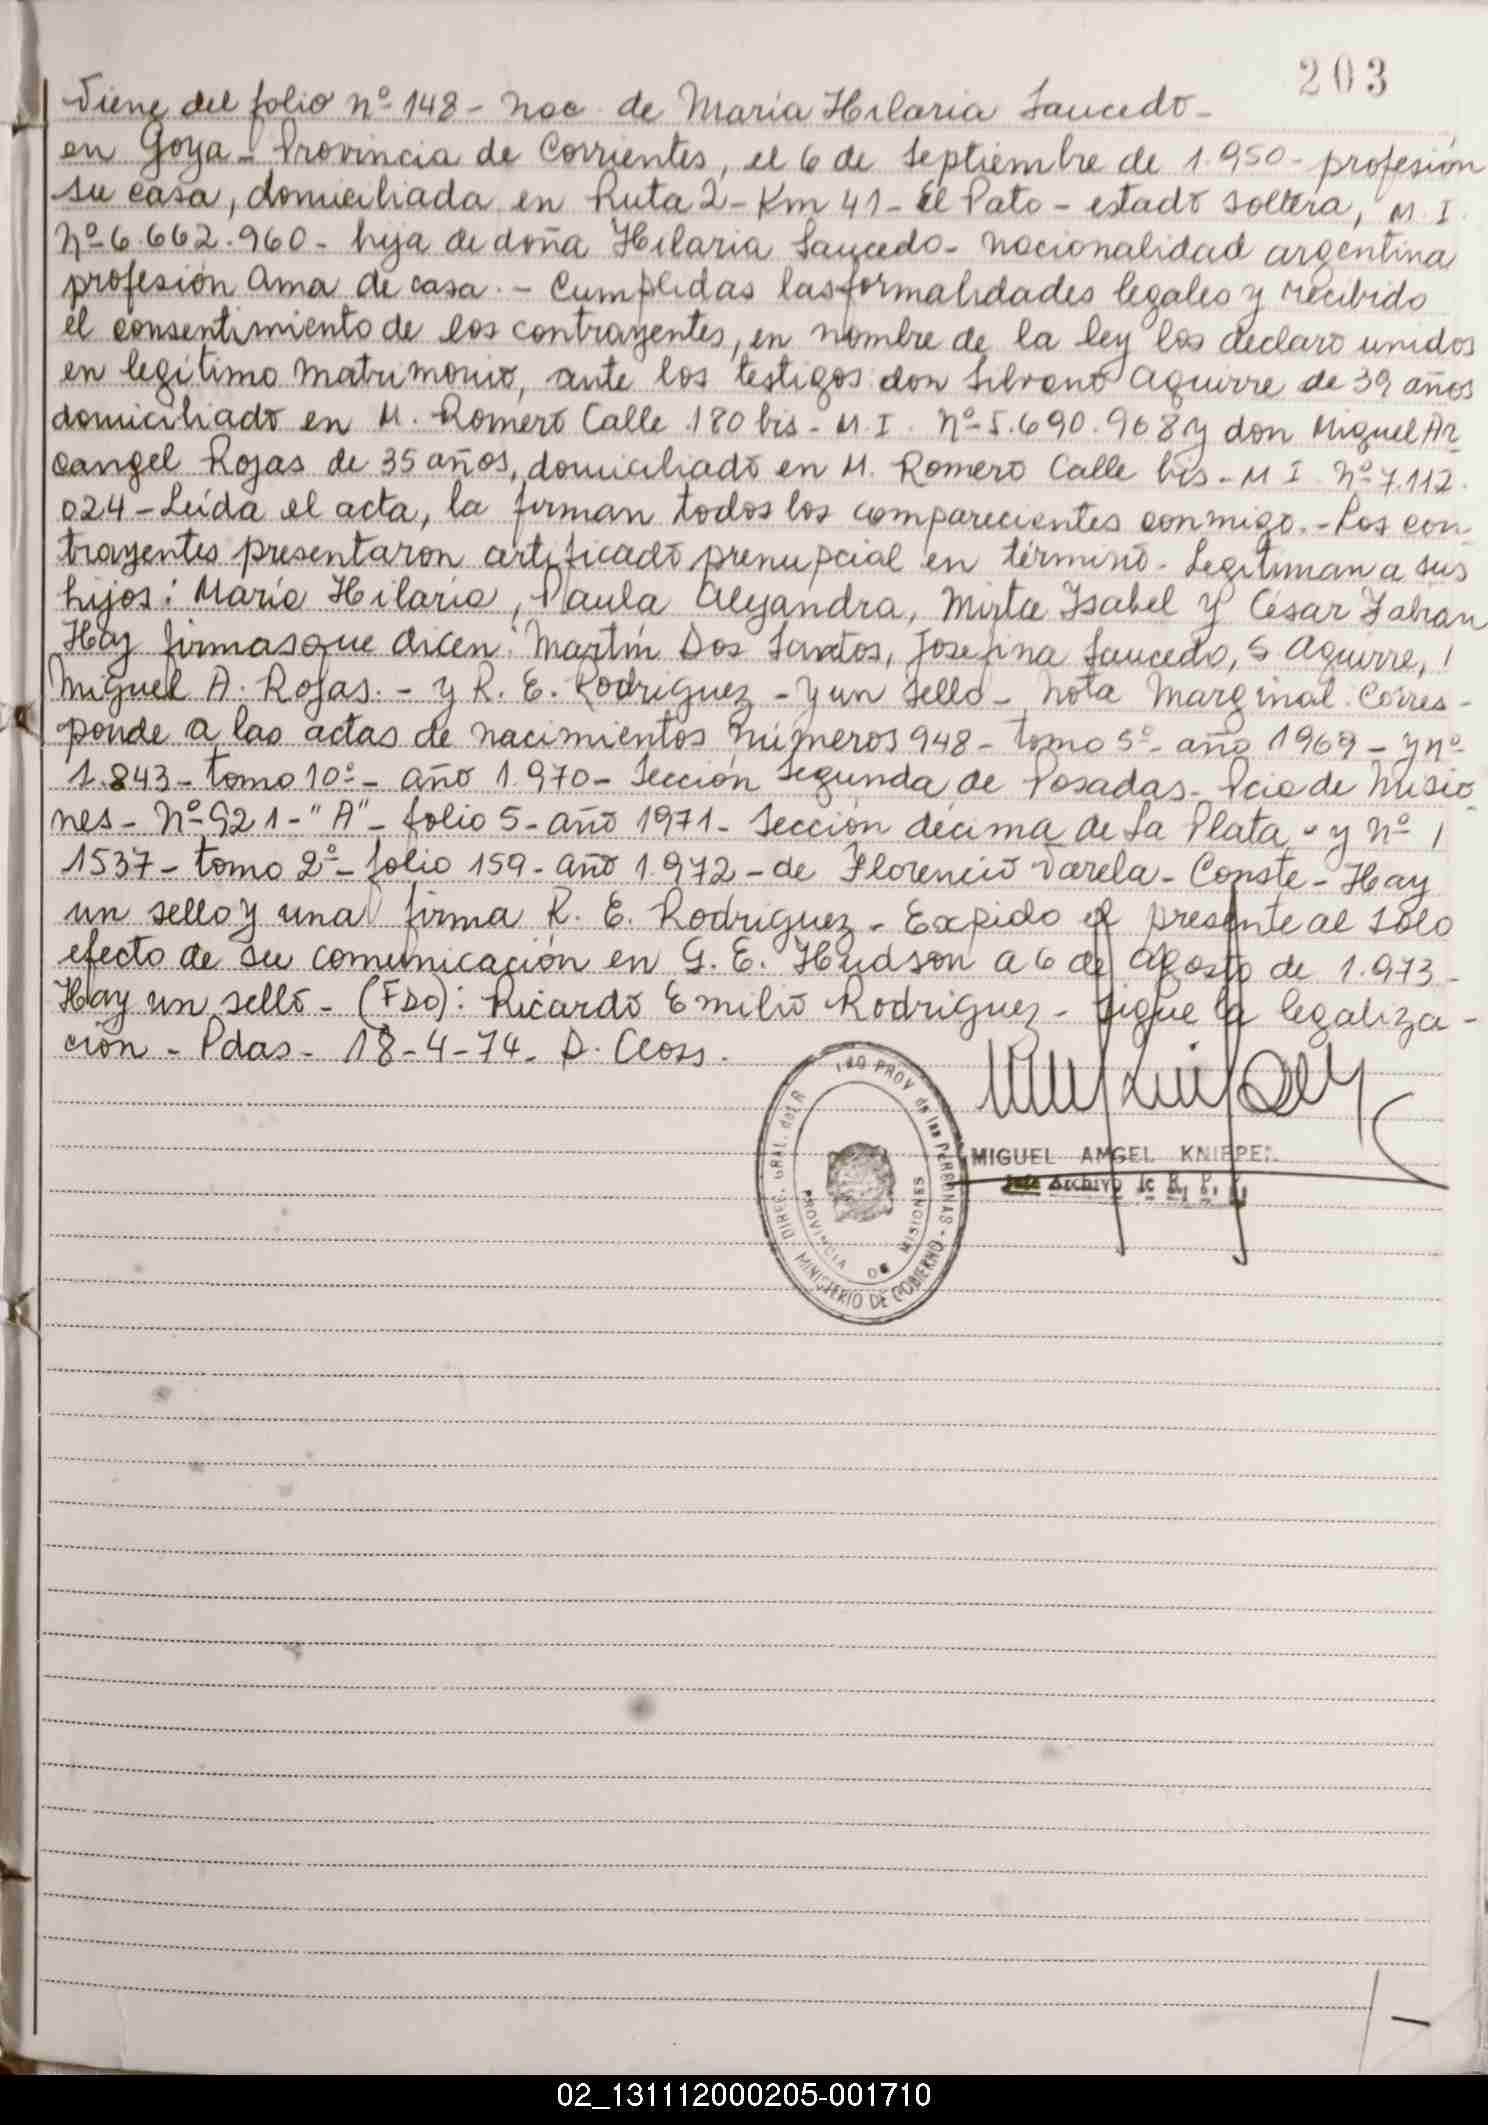 203
Viene del folio nº 148 - Nac. de María Hilaria Saucedo -
en Goya - Provincia de Corrientes, el 6 de Septiembre de 1.950 - profesión
su casa, domiciliada en Ruta 2 - Km 41 - El Pato - estado soltera, M. I.
Nº 6.662.960 - hija de doña Hilaria Saucedo - nacionalidad argentina
profesión Ama de casa. - Cumplidas las formalidades legales y recibido
el consentimiento de los contrayentes, en nombre de la ley los declaro unidos
en legítimo matrimonio, ante los testigos don Silvano Aguirre de 39 años
domiciliado en M. Romero Calle 180 bis - M. I. Nº 5.690.968 y don Miguel Ar
cangel Rojas de 35 años, domiciliado en M. Romero Calle bis - M I. Nº 7.112.
024 - Leída el acta, la firman todos los comparecientes conmigo. - Los con
trayentes presentaron certificado prenupcial en término - Legitiman a sus
hijos: María Hilaria, Paula Alejandra, Mirta Isabel y César Fabian
Hay firmas que dicen: Martín Dos Santos, Josefina Saucedo, S Aguirre,
Miguel A. Rojas. - y R. E. Rodriguez - y un sello - Nota Marginal. Corres -
ponde a las actas de nacimientos números 948 - tomo 5º - año 1969 - y nº
1.843 - tomo 10º - año 1.970 - Sección Segunda de Posadas - Pcia de Misio
nes - Nº 921 - "A" - folio 5 - año 1971 - Sección décima de La Plata - y Nº
1537 - tomo 2º - folio 159 - año 1.972 - de Florencio Varela - Conste - Hay
un sello y una firma R. E. Rodriguez - Expido el presente al solo
efecto de su comunicación en G. E. Hudson a 6 de agosto de 1.973 -
Hay un sello - (FDO): Ricardo Emilio Rodriguez - Sigue la legaliza -
ción - Pdas - 18-4-74 - D. Closs.
PROV de las PERSONAS - MINISTERIO DE GOBIERNO
DIREC. GRAL. del R
PROVINCIA DE MISIONES
MIGUEL ANGEL KNIEPER
Jefe Archivo
02_131112000205-001710